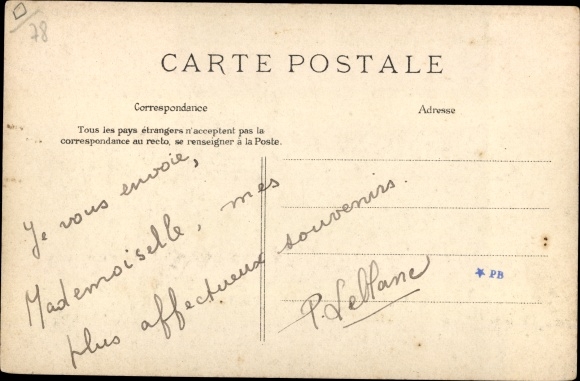 78
CARTE POSTALE
Correspondance
Adresse
Tous les pays étrangers n'acceptent pas la
correspondance au recto, se renseigner à la Poste.
Je vous envoie,
Mademoiselle, mes
plus affectueux souvenirs.
P. Leblanc
PB